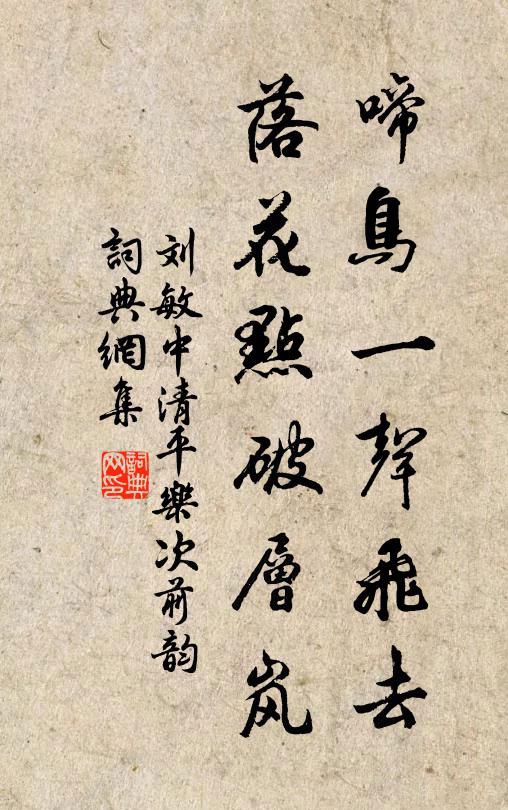 啼鳥一聲飛去
落花點破層岚
刘敏中清平樂次前韵
詞典網集
詞典网印